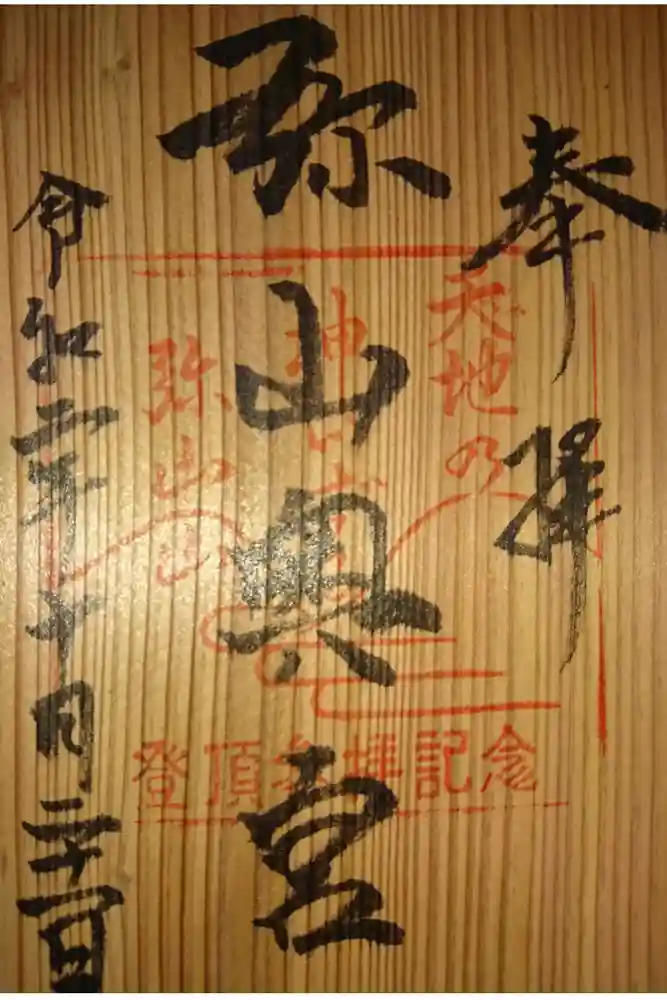 奉拝
弥山奥宮
令和二年十月二十一日
天地乃
神
弥山
登頂参拝記念